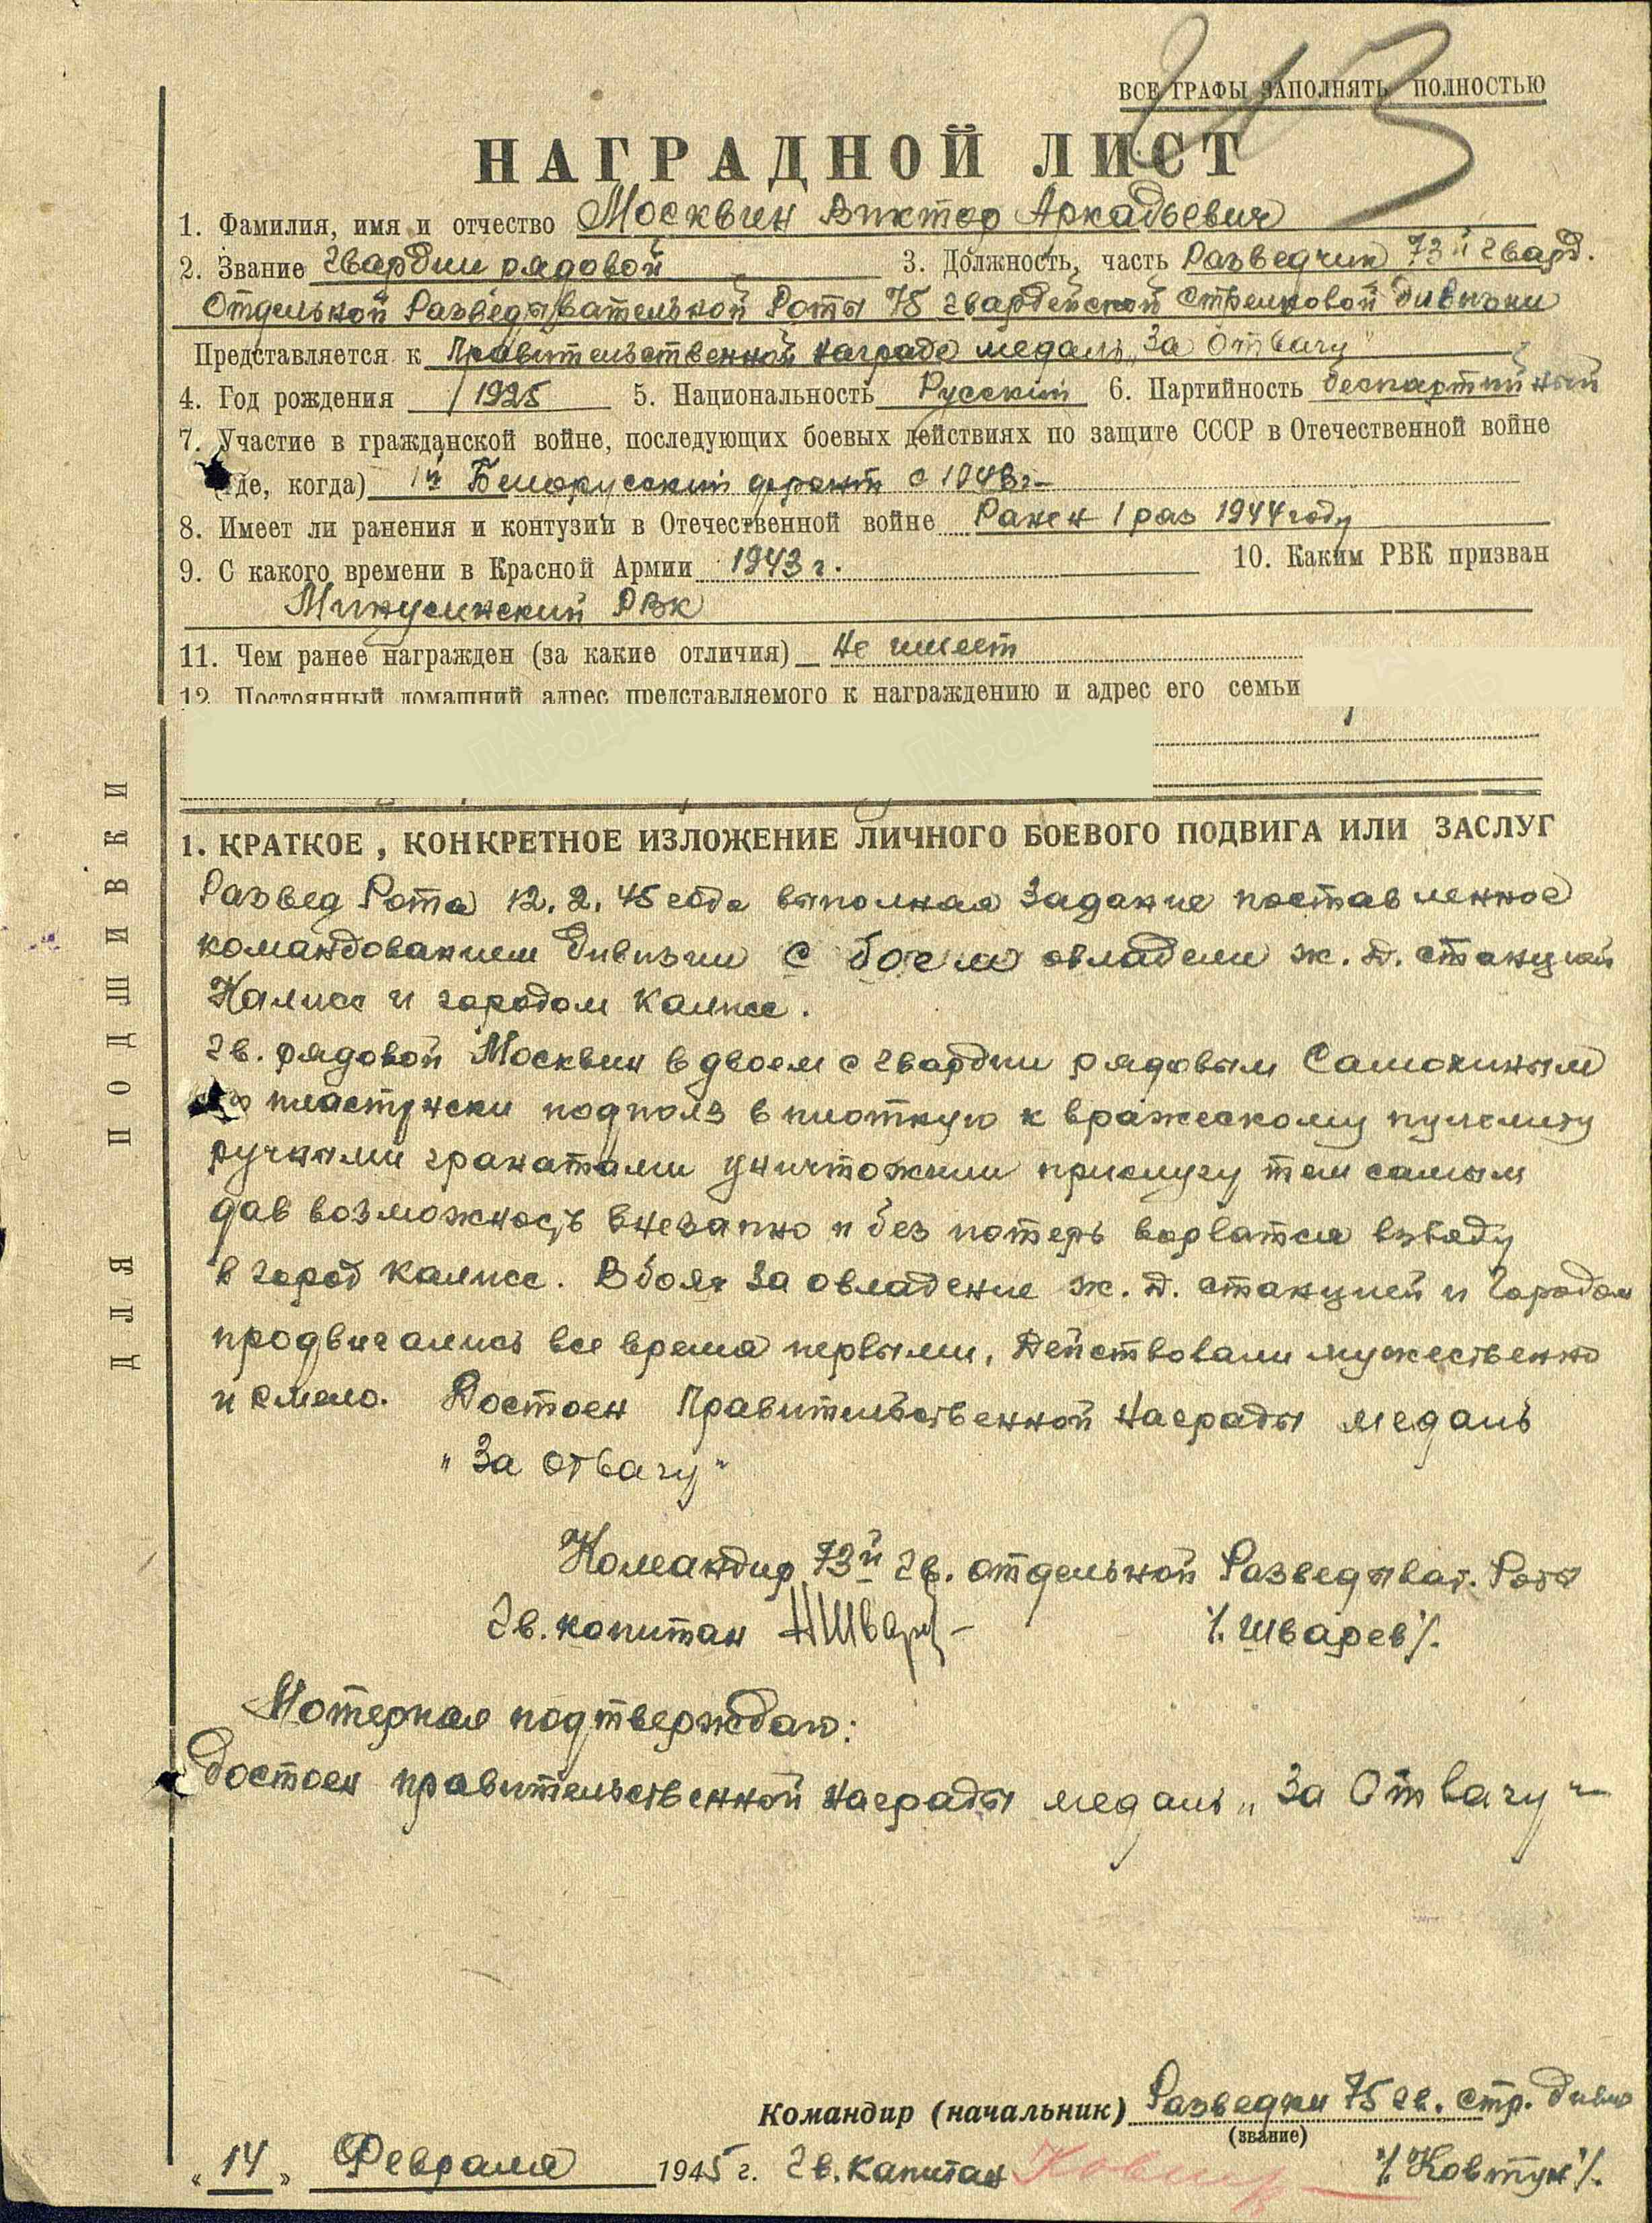 ВСЕ ГРАФЫ ЗАПОЛНЯТЬ ПОЛНОСТЬЮ
НАГРАДНОЙ ЛИСТ
1. Фамилия, имя и отчество Москвин Виктор Аркадьевич
2. Звание гвардии рядовой 3. Должность, часть Разведчик 73й гвард.
Отдельной Разведывательной Роты 75 гвардейской стрелковой дивизии
Представляется к Правительственной награде медаль „За Отвагу"
4. Год рождения 1925 5. Национальность Русский 6. Партийность беспартийный
7. Участие в гражданской войне, последующих боевых действиях по защите СССР в Отечественной войне
(где, когда) 1й Белорусский фронт с 1943г.
8. Имеет ли ранения и контузии в Отечественной войне Ранен 1 раз 1944 году
9. С какого времени в Красной Армии 1943 г. 10. Каким РВК призван
Минусинский РВК
11. Чем ранее награжден (за какие отличия) Не имеет
12. Постоянный домашний адрес представляемого к награждению и адрес его семьи
ДЛЯ ПОДШИВКИ
1. КРАТКОЕ, КОНКРЕТНОЕ ИЗЛОЖЕНИЕ ЛИЧНОГО БОЕВОГО ПОДВИГА ИЛИ ЗАСЛУГ
Развед Рота 12.2.45 года выполняя Задание поставленное
командованием дивизии с боем овладели ж.д. станцией
Калисс и городом Калисс.
Гв. рядовой Москвин в двоем с гвардии рядовым Самохиным
пластунски подполз в плотную к вражескому пулемету
ручными гранатами уничтожили прислугу тем самым
дав возможность внезапно и без потерь ворватся взводу
в город Калисс. В боях за овладение ж.д. станцией и городом
продвигались все время первыми, Действовали мужественно
и смело. Достоен Правительственной награды медаль
„За отвагу"
Командир 73й гв. отдельной Разведыват. Роты
Гв. копитан НШвар /.Шварев/.
Мотерьял подтверждаю:
достоен правительственной награды медаль „За Отвагу"
Командир (начальник) Разведки 75 гв. стр. дивиз
(звание)
„14" Февраля 1945 г. Гв. капитан /.Ковтун/.